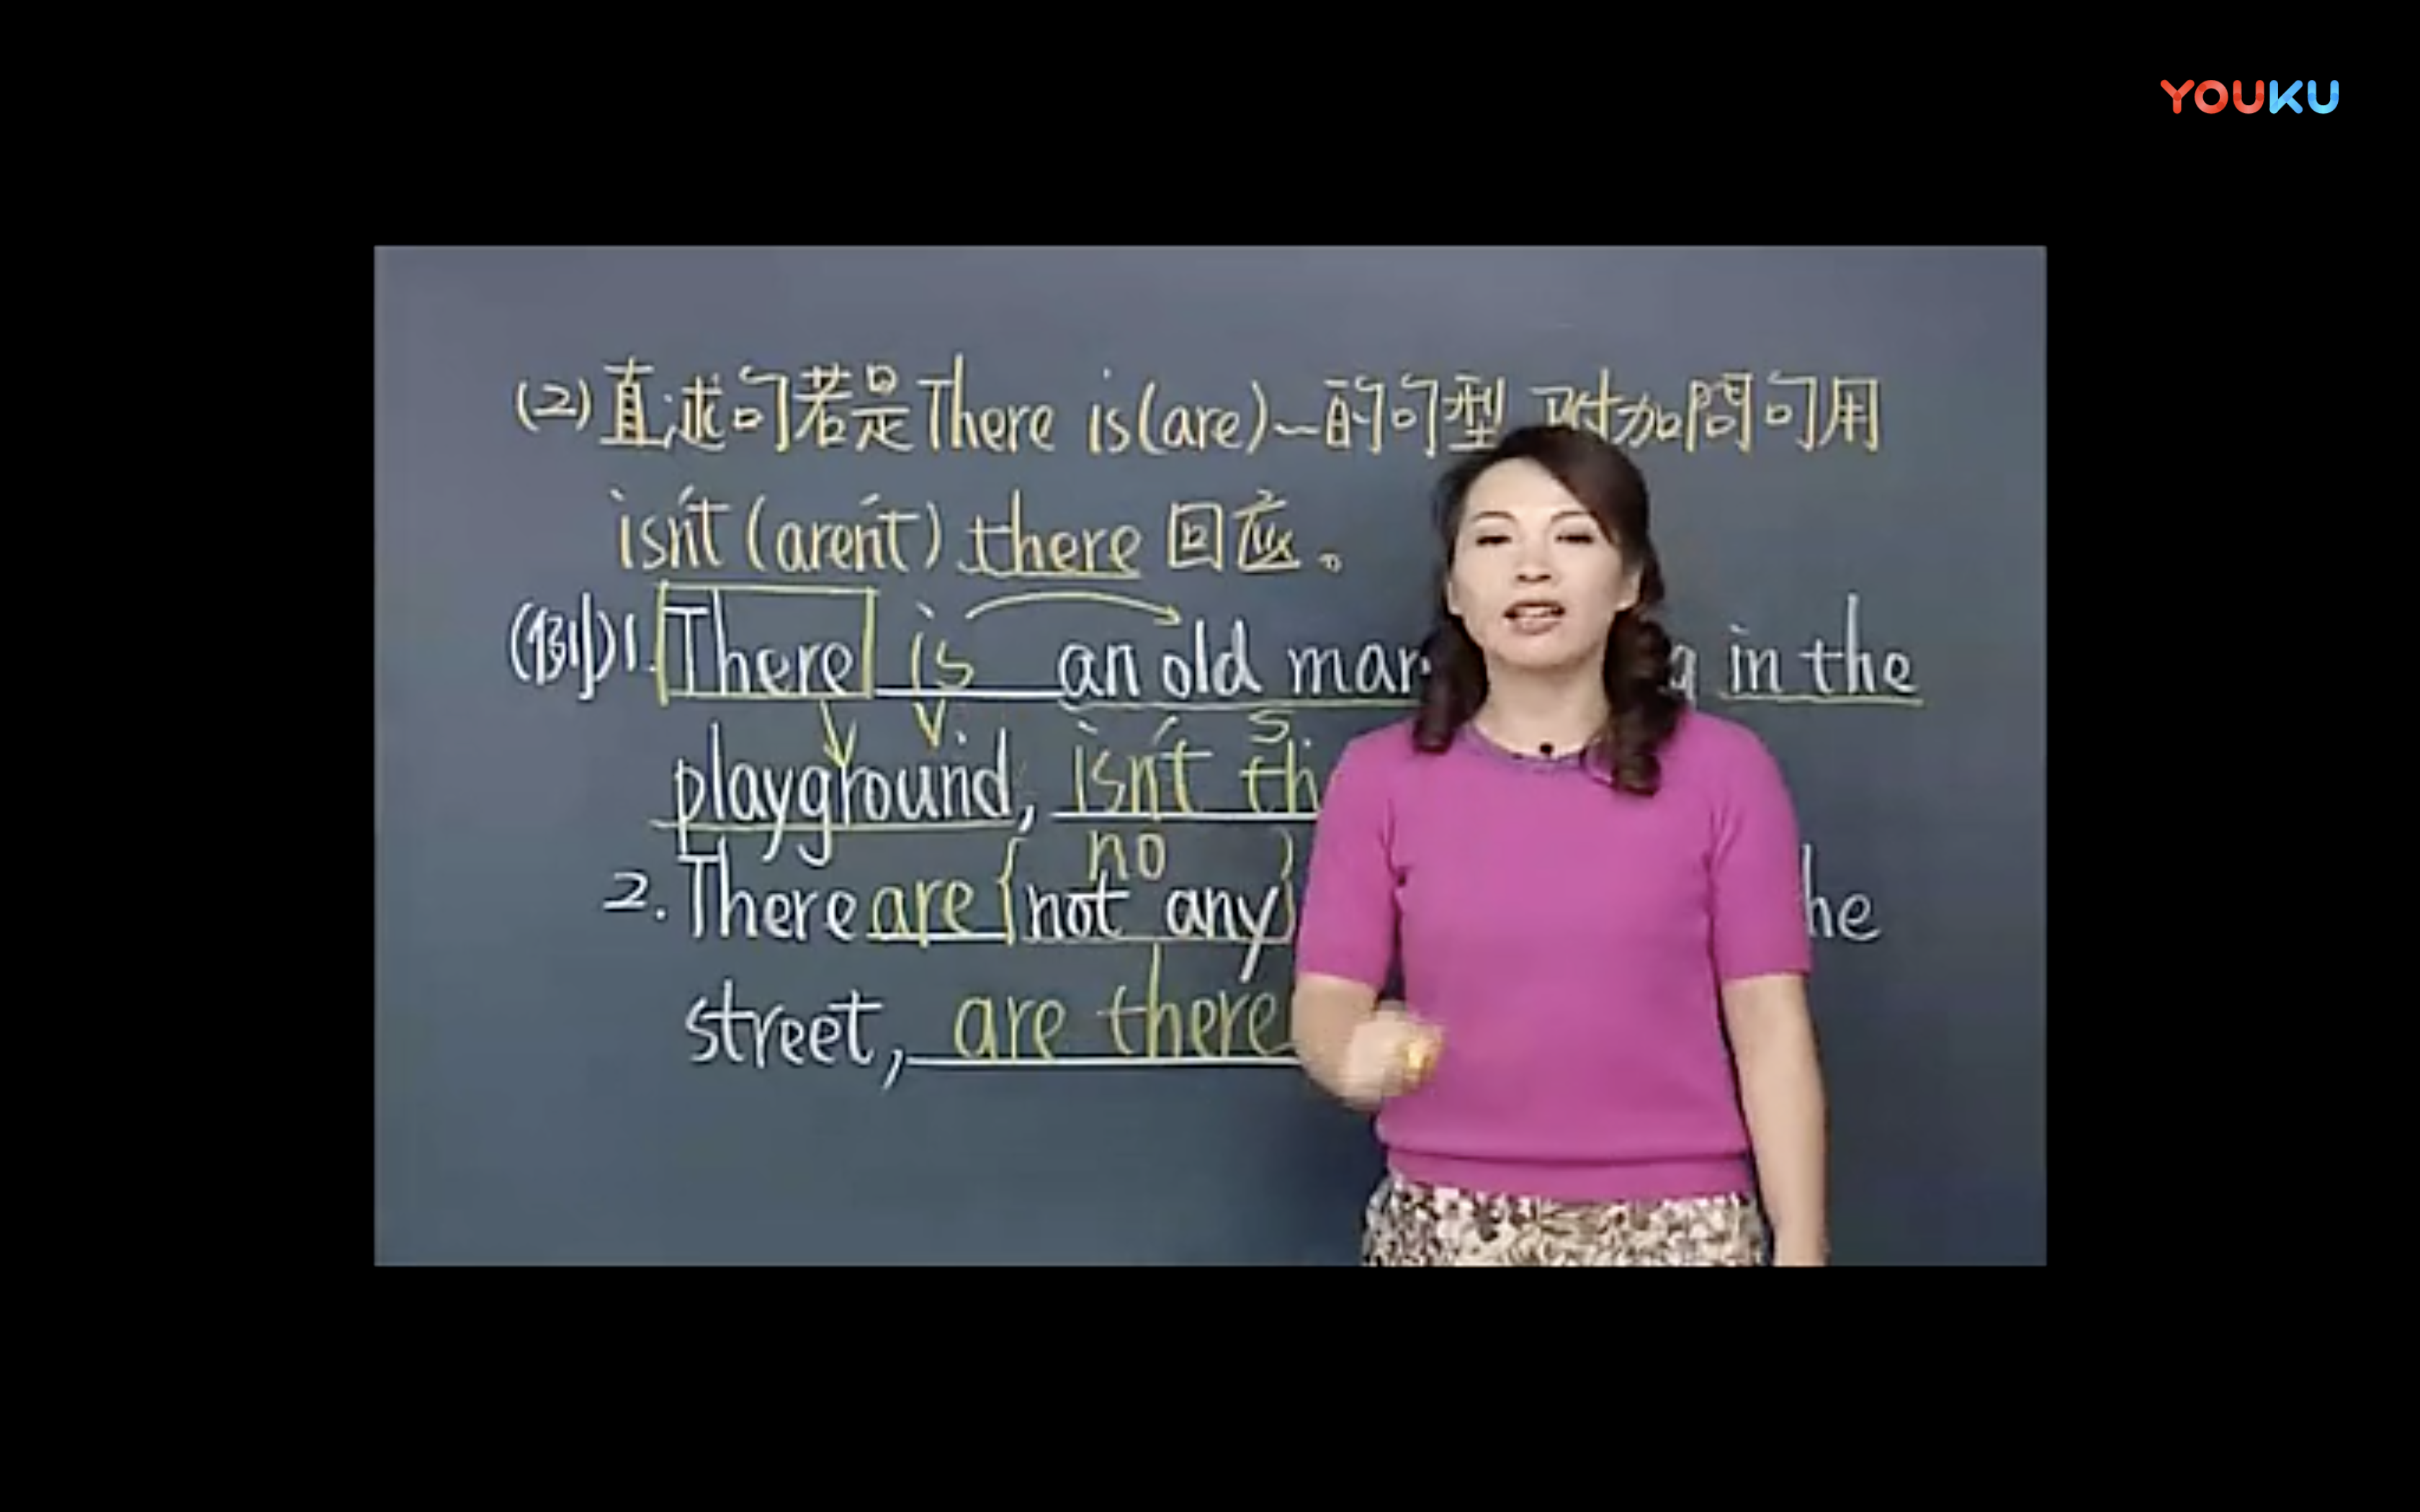 YOUKU
(2)直述句若是There is(are)~的句型 附加問句用
isn't (aren't) there 回应。
(例)1. There is an old man in the
S.
playground, isn't
no
2. There are {not any}
street, are there